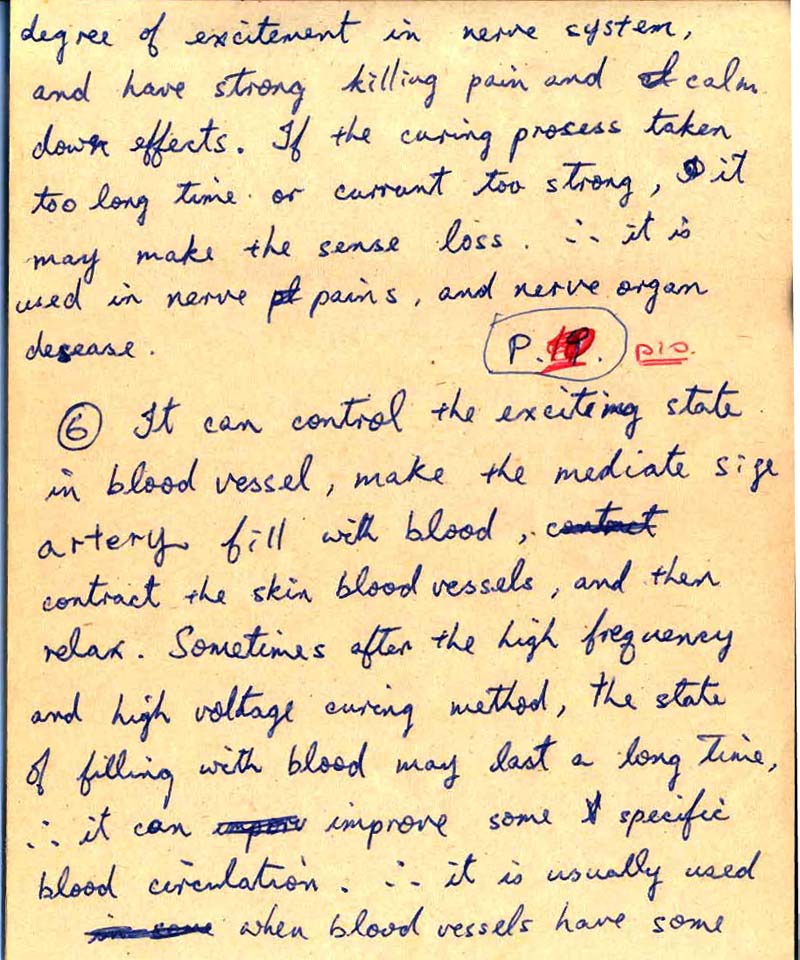 degree of excitement in nerve system,
and have strong killing pain and calm
down effects. If the curing prosess taken
too long time or currunt too strong, it
may make the sense loss. ∴ it is
used in nerve pains, and nerve organ
desease.
P. 19. p10.
⑥ It can control the exciteing state
in blood vessel, make the mediate size
artery fill with blood, contract
contract the skin blood vessels, and then
relax. Sometimes after the high frequency
and high voltage curing method, the state
of filling with blood may last a long time,
∴ it can improve some specific
blood circulation. ∴ it is usually used
in some when blood vessels have some